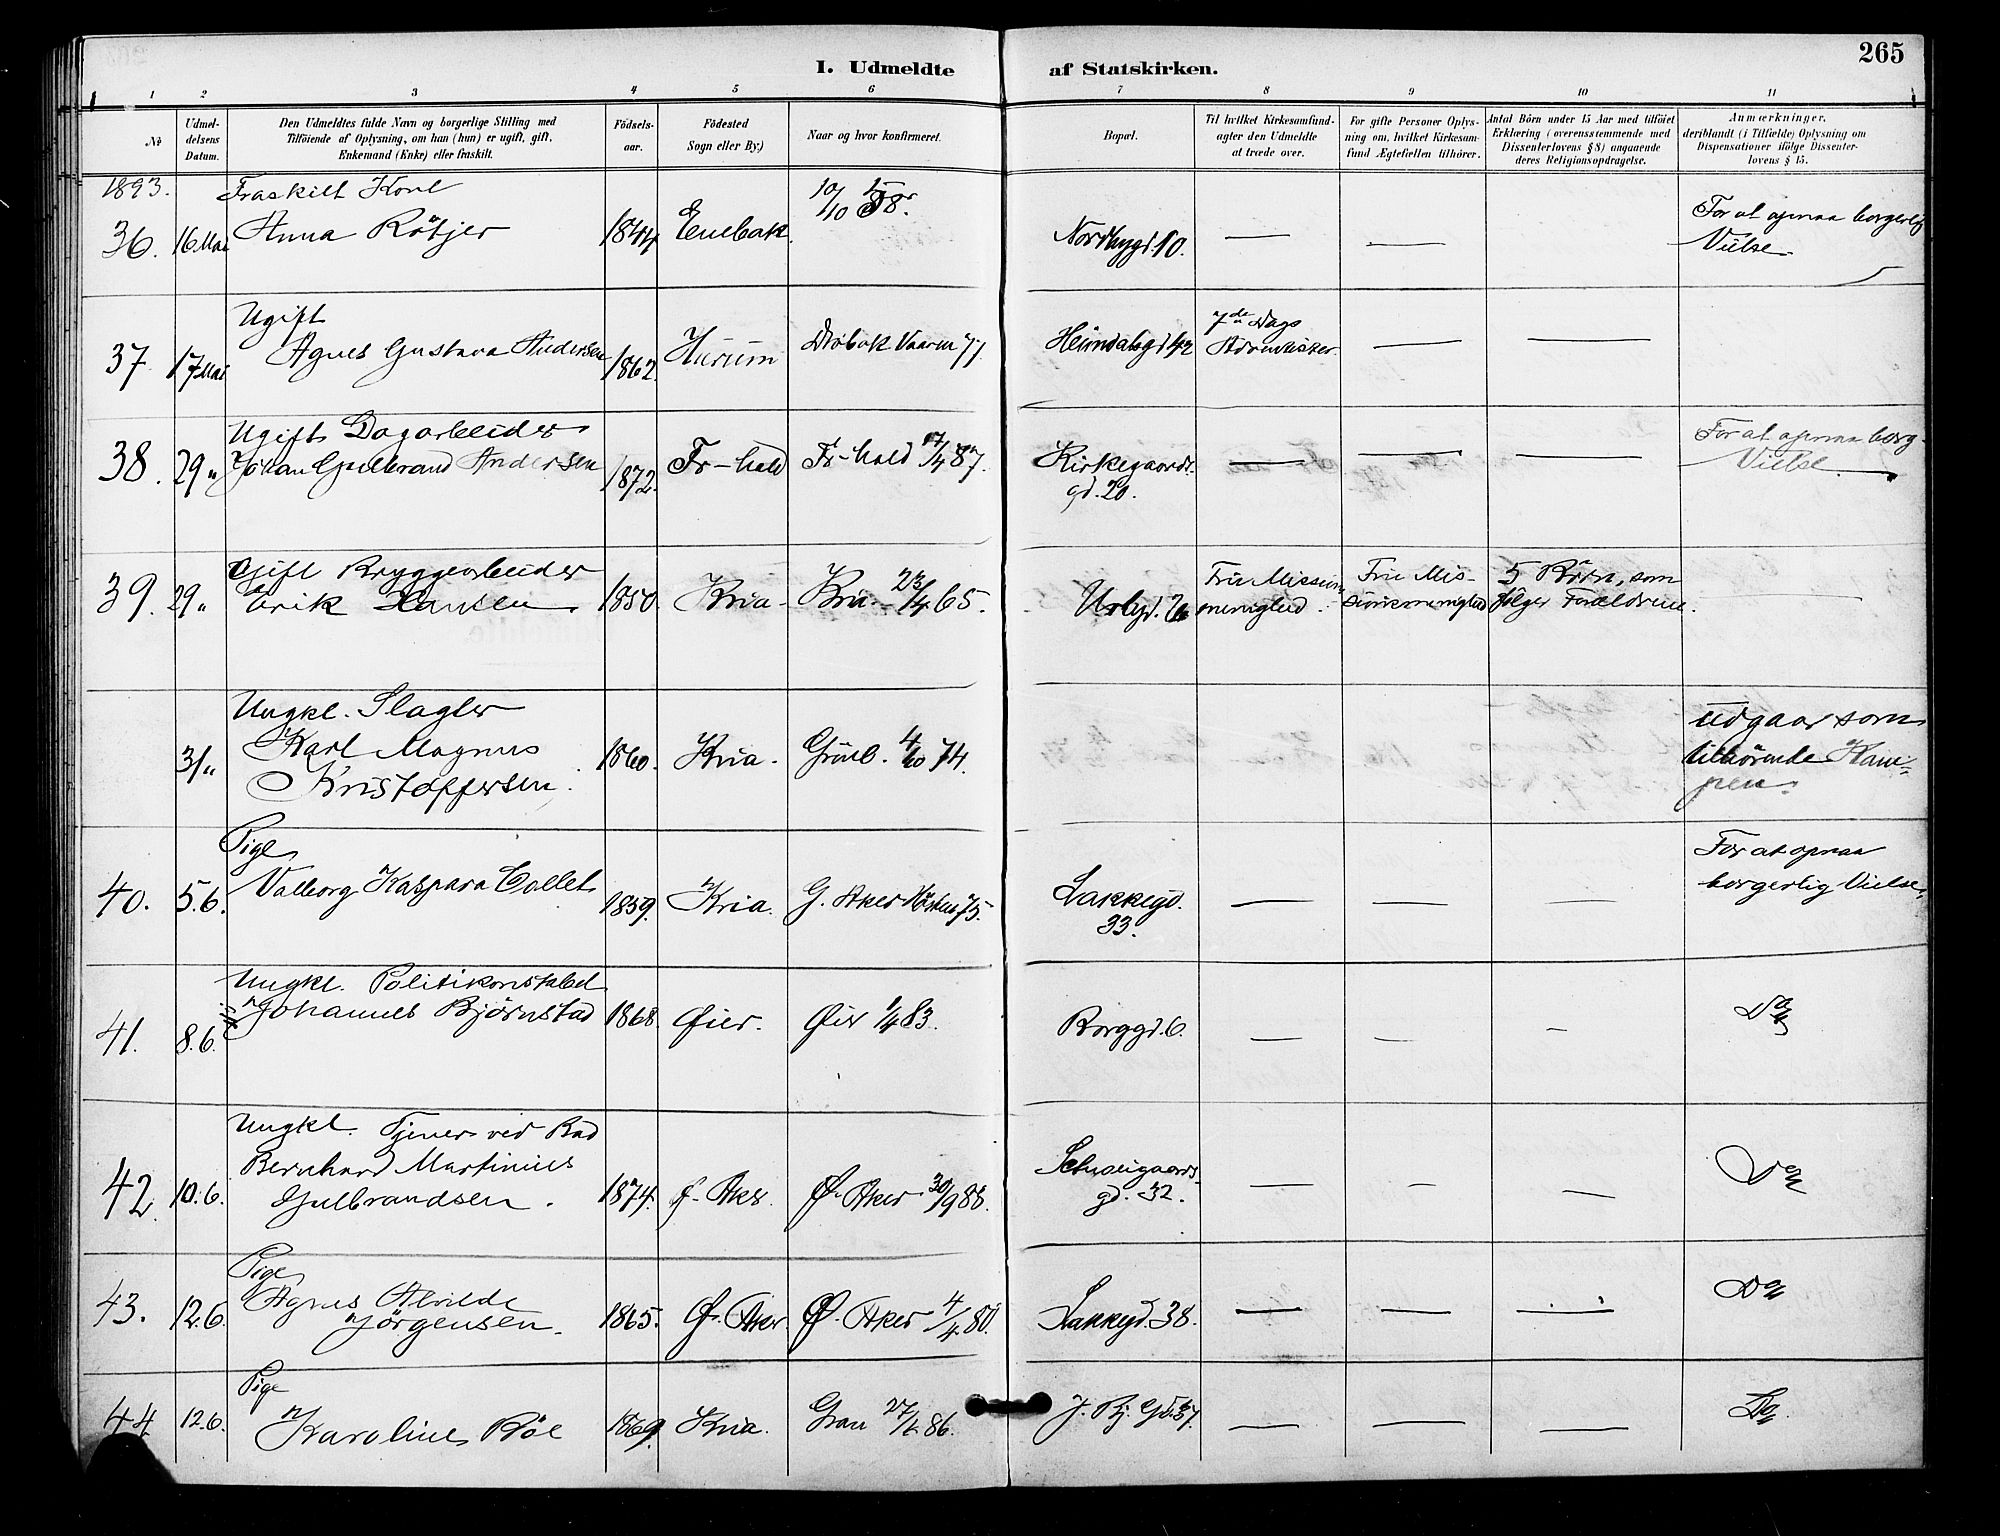 265
I. Udmeldte af Statskirken.
1 2 3 4 5 6 7 8 9 10 11
No
Udmel-
delsens
Datum.
Den Udmeldtes fulde Navn og borgerlige Stilling med
Tilföiende af Oplysning, om han (hun) er ugift, gift,
Enkemand (Enke) eller fraskilt.
Födsels-
aar.
Födested
Sogn eller By.)
Naar og hvor konfirmeret.
Bopæl.
Til hvilket Kirkesamfund-
agter den Udmeldte
at træde over.
For gifte Personer Oplys-
ning om, hvilket Kirkesam-
fund Ægtefællen tilhörer.
Antal Börn under 15 Aar med tilföiet
Erklæring (overensstemmende med
Dissenterlovens § 8) angaaende
deres Religionsopdragelse.
Anmærkninger,
deriblandt (i Tilfælde) Oplysning om
Dispensationer ifölge Dissenter-
lovens § 15.
1893.
Fraskilt Kone
36. 16 Mai Anna Rötjer 1844 Enebak. 10/10 58. Nordbygd. 10. — — —
For at opnaa borgerlig
Vielse
Ugift
37 17 Mai Agnes Gustava Andersen 1862. Hurum Dröbak Vaaren 77 Heimdalsgd 42
7de Dags
Adventister — — —
Ugift Dagarbeider
38. 29 " Johan Gulbrand Andersen 1872. Fr-hald Fr-hald 17/4 87. Kirkegaards-
gd. 20. — — —
For at opnaa borg.
Vielse.
Gift Bryggearbeider
39. 29 " Erik Hansen 1850. Kria. Kria 23/4 65. Urbygd.
Frie Missions
menighed.
Frie Mis-
sionsmenighed
5 Börn, som
fölger Forældrene. —
Ungkl. Slagter
31 " Karl Magnus
Kristoffersen. 1860. Kria. Grönl. 4/10 74.
Udgaar som
tilhörende Kam-
pen.
Pige
40. 5.6. Valborg Kaspara Collet 1859. Kria. G. Aker Hösten 75. Lakkegd.
33. — — —
For at opnaa
borgerlig Vielse.
Ungkl. Politikonstabel
41. 8.6. Johannes Bjørnstad 1868. Øier. Øier 1/4 83. Borggd. 6. — — — Do
Ungkl. Tjener ved Bad
42. 10.6. Bernhard Martinius
Gulbrandsen. 1874. Ø. Aker. Ø. Aker 30/9 88. Schweigaards-
gd. 32. — — — Do
Pige
43. 12.6. Agnes Alvilde
Jörgensen. 1865. Ø. Aker Ø. Aker 4/4 80. Lakkegd. 38. — — — Do
Pige
44 12.6. Karoline Röe 1869. Kria. Gran 86. J. Bj. Gd. 37. — — — Do.